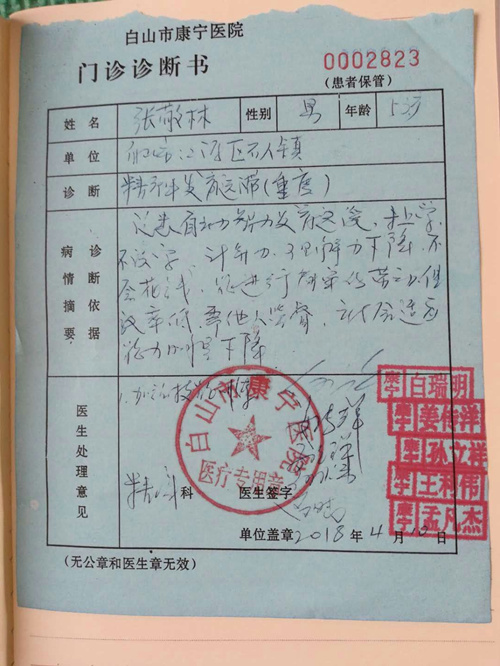 白山市康宁医院
门诊诊断书
0002823
(患者保管)
姓名 张敬林 性别 男 年龄
单位 江源区石人镇
诊断 精神发育迟滞(重度)
诊断依据
病情摘要
自幼智力发育迟缓,未上学,
不识字,计算力、理解力下降,不
会花钱,能进行简单的劳动,但
效率低,需他人监督,社会适应
能力明显下降
医生处理意见
精神科
医生签字
单位盖章 2018年4月10日
(无公章和医生章无效)
白山市康宁医院
医疗专用章
康宁 白瑞明
康宁 姜传洋
康宁 孙立祥
康宁 王利伟
康宁 孟凡杰